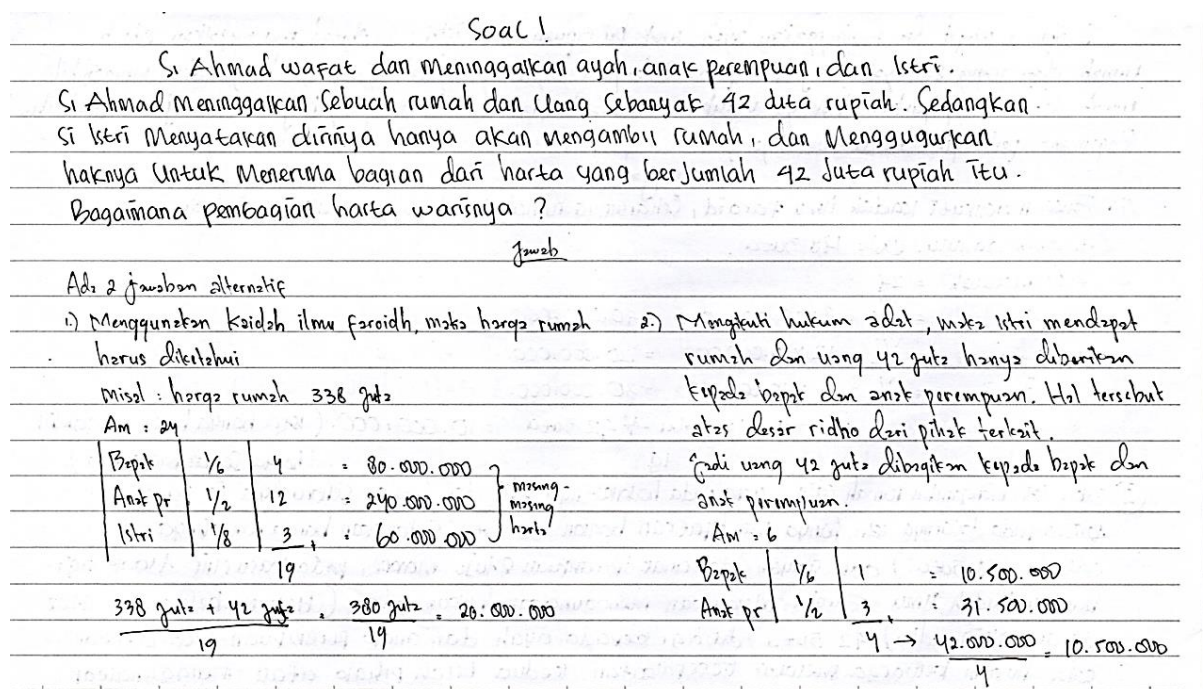 Soal !
Si Ahmad wafat dan meninggalkan ayah, anak perempuan, dan Istri.
Si Ahmad Meninggalkan Sebuah rumah dan Uang Sebanyak 42 duta rupiah. Sedangkan
Si Istri Menyatakan dirinya hanya akan mengambil rumah, dan Menggugurkan
haknya Untuk Menerima bagian dari harta yang berjumlah 42 Juta rupiah itu.
Bagaimana pembagian harta warisnya ?
Jawab
Ada 2 jawaban alternatif
1.) Menggunakan Kaidah ilmu faroidh, maka harga rumah
harus diketahui
Misal : harga rumah 338 juta
Am : 24
Bapak 1/6 4 = 80.000.000
Anak pr 1/2 12 = 240.000.000
Istri 1/8 3 + = 60.000.000
masing-
masing
harta
19
338 juta + 42 juta = 380 juta = 20.000.000
19 19
2.) Mengikuti hukum adat, maka istri mendapat
rumah dan uang 42 juta hanya diberikan
kepada bapak dan anak perempuan. Hal tersebut
atas dasar ridho dari pihak terkait.
Jadi uang 42 juta dibagikan kepada bapak dan
anak perempuan.
Am : 6
Bapak 1/6 1 = 10.500.000
Anak pr 1/2 3 + = 31.500.000
4 → 42.000.000 = 10.500.000
4